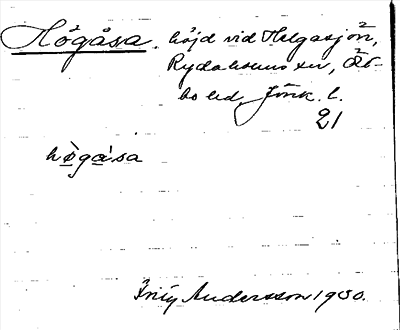 Högåsa. höjd vid Helgasjön,
Rydaholms sn, Öst-
bo hd, Jönk. l.
21
högåsa
Andersson 1930.